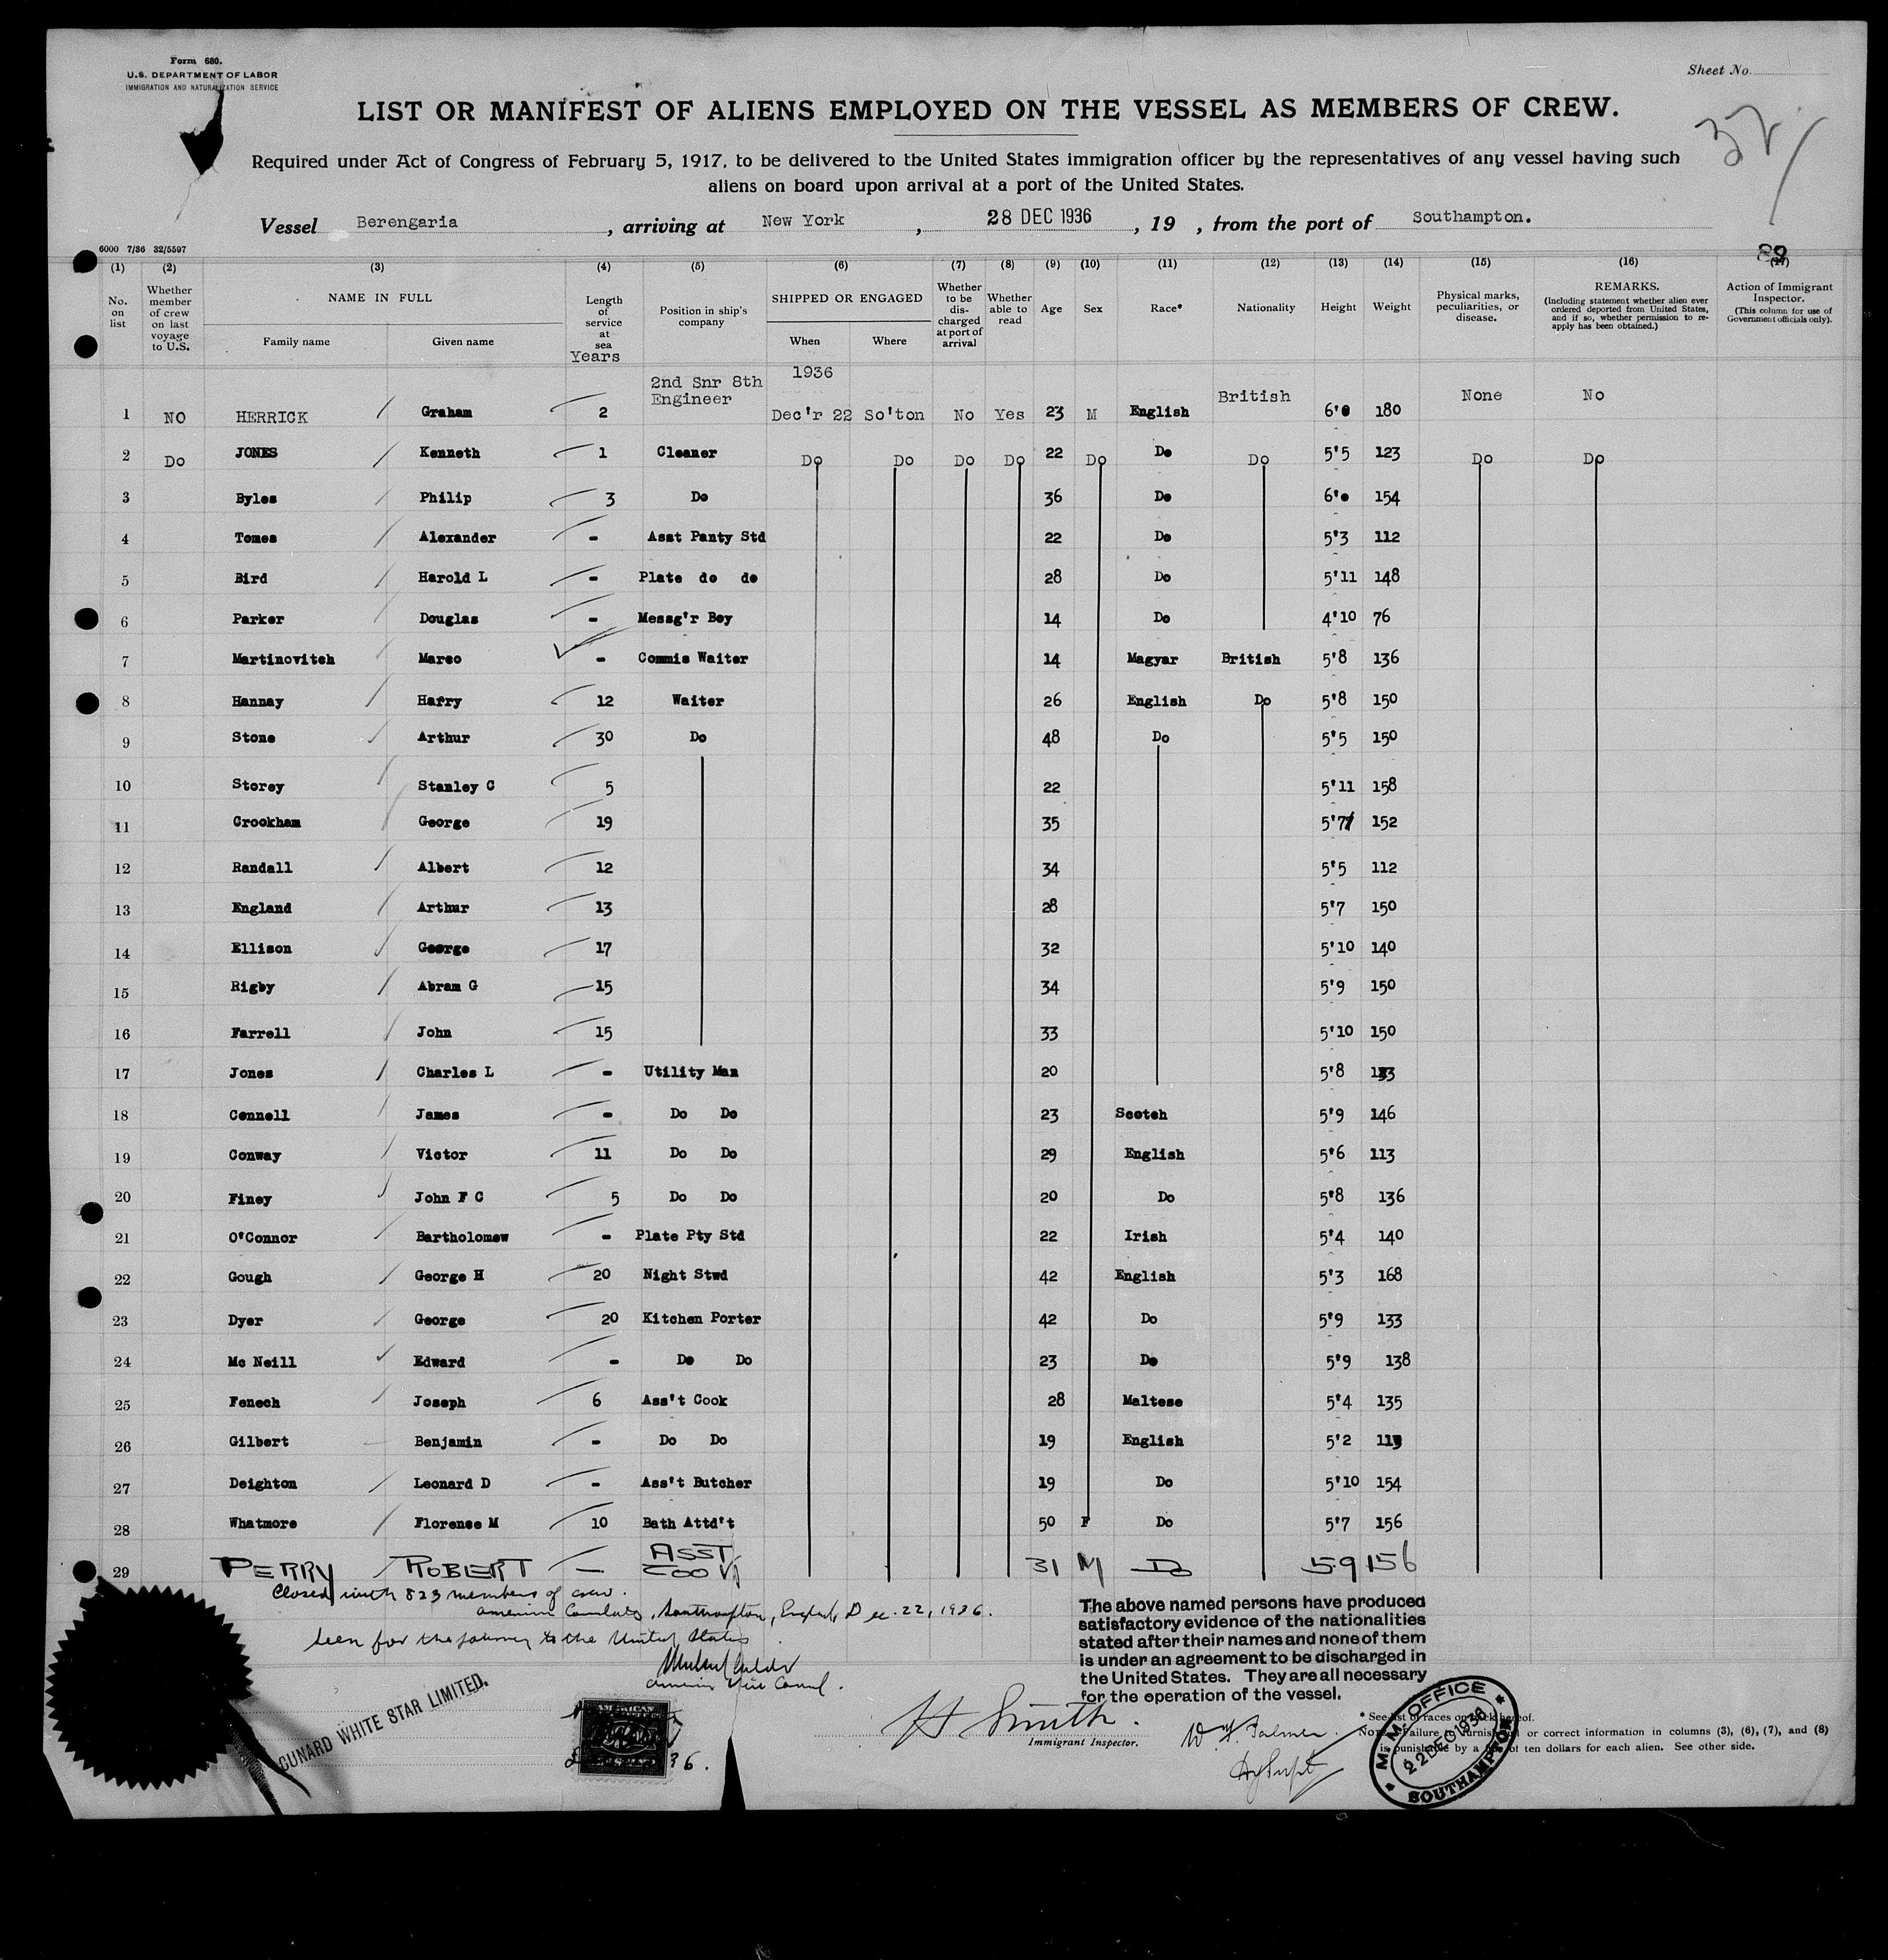 Form 680.
U.S. DEPARTMENT OF LABOR
IMMIGRATION AND NATURALIZATION SERVICE
Sheet No.
LIST OR MANIFEST OF ALIENS EMPLOYED ON THE VESSEL AS MEMBERS OF CREW.
Required under Act of Congress of February 5, 1917, to be delivered to the United States immigration officer by the representatives of any vessel having such
aliens on board upon arrival at a port of the United States.
Vessel Berengaria, arriving at New York, 28 DEC 1936, 19 , from the port of Southampton.
6000 7/36 32/5597
(1) (2) (3) (4) (5) (6) (7) (8) (9) (10) (11) (12) (13) (14) (15) (16) (17)
No. on list
Whether member of crew on last voyage to U.S.
NAME IN FULL
Family name Given name
Length of service at sea
Years
Position in ship's company
SHIPPED OR ENGAGED
When Where
Whether to be discharged at port of arrival
Whether able to read
Age
Sex
Race*
Nationality
Height
Weight
Physical marks, peculiarities, or disease.
REMARKS.
(Including statement whether alien ever ordered deported from United States, and if so, whether permission to re-apply has been obtained.)
Action of Immigrant Inspector.
(This column for use of Government officials only).
1 NO HERRICK Graham 2 2nd Snr 8th Engineer 1936 Dec'r 22 So'ton No Yes 23 M English British 6'0 180 None No
2 Do JONES Kenneth 1 Cleaner Do Do Do Do 22 Do Do Do 5'5 123 Do Do
3 Byles Philip 3 Do 36 Do 6'0 154
4 Tomes Alexander - Asst Panty Std 22 Do 5'3 112
5 Bird Harold L - Plate do do 28 Do 5'11 148
6 Parker Douglas - Messg'r Boy 14 Do 4'10 76
7 Martinovitch Marco - Commis Waiter 14 Magyar British 5'8 136
8 Hannay Harry 12 Waiter 26 English Do 5'8 150
9 Stone Arthur 30 Do 48 Do 5'5 150
10 Storey Stanley C 5 22 5'11 158
11 Crookham George 19 35 5'7 152
12 Randall Albert 12 34 5'5 112
13 England Arthur 13 28 5'7 150
14 Ellison George 17 32 5'10 140
15 Rigby Abram G 15 34 5'9 150
16 Farrell John 15 33 5'10 150
17 Jones Charles L - Utility Man 20 5'8 133
18 Connell James - Do Do 23 Scotch 5'9 146
19 Conway Victor 11 Do Do 29 English 5'6 113
20 Finey John F C 5 Do Do 20 Do 5'8 136
21 O'Connor Bartholomew - Plate Pty Std 22 Irish 5'4 140
22 Gough George H 20 Night Stwd 42 English 5'3 168
23 Dyer George 20 Kitchen Porter 42 Do 5'9 133
24 Mc Neill Edward - Do Do 23 Do 5'9 138
25 Fenech Joseph 6 Ass't Cook 28 Maltese 5'4 135
26 Gilbert Benjamin - Do Do 19 English 5'2
27 Deighton Leonard D - Ass't Butcher 19 Do 5'10 154
28 Whatmore Florence M 10 Bath Attd't 50 F Do 5'7 156
29 PERRY ROBERT - ASST COOK 31 M Do 5.9 156
Closed with 823 members of crew.
American Consulate, Southampton, England, Dec. 22, 1936.
Seen for the journey to the United States
American Vice Consul.
CUNARD WHITE STAR LIMITED.
The above named persons have produced
satisfactory evidence of the nationalities
stated after their names and none of them
is under an agreement to be discharged in
the United States. They are all necessary
for the operation of the vessel.
H Smith.
Immigrant Inspector.
M. M. OFFICE
22 DEC 1936
SOUTHAMPTON
* See list of races on back hereof.
Note.—Failure to furnish full or correct information in columns (3), (6), (7), and (8)
is punishable by a fine of ten dollars for each alien. See other side.